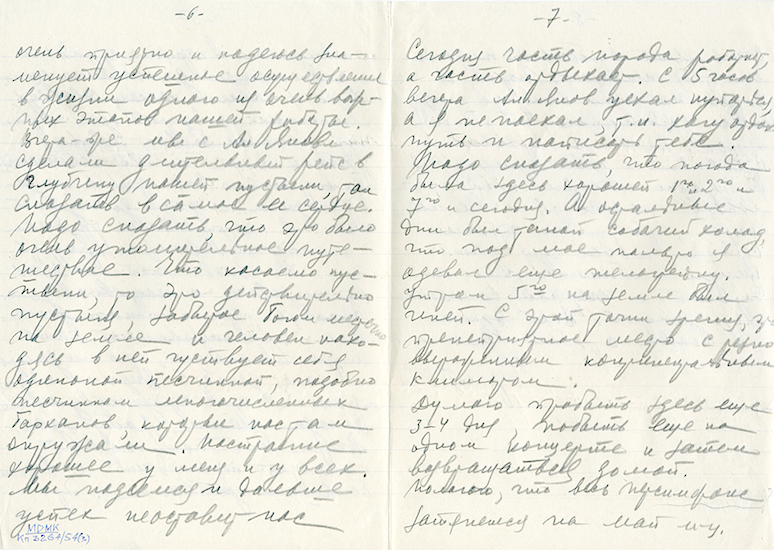 -6-
очень приятно и надеюсь зна-
менует успешное осуществление
в жизни одного из очень важ-
ных этапов нашей работы.
Вчера-же мы с Ал Янов
сделали длительный рейс в
глубину нашей пустыни, так
сказать в самое её сердце.
Надо сказать, что это было
очень утомительное путе-
шествие. Что касаемо пус-
тыни, то это действительно
пустыня, забытое богом местечко
на земле и человек нахо-
дясь в ней чувствует себя
одинокой песчинкой, подобно
песчинкам многочисленных
барханов, которые нас там
окружали. Настроение
хорошее у меня и у всех.
Мы надеемся и дальше
успех не оставит нас
МРМК
Кп 3267/54(3)
-7-
Сегодня часть народа работает,
а часть отдыхает. С 5 часов
вечера Ал Янов уехал купаться,
а я не поехал, т.к. хочу отдох-
нуть и написать тебе.
Надо сказать, что погода
была здесь хорошей 1го, 2го и
7го и сегодня. А остальные
дни был такой собачий холод,
что под мое пальто я
одевал еще телогрейку.
Утром 5го на земле был
иней. С этой точки зрения,
пренеприятное место с резко
выраженным континентальным
климатом.
Думаю пробыть здесь еще
3-4 дня, побыть еще на
одном концерте и затем
возвращаться домой.
Полагаю, что весь
затянется на май м-ц.